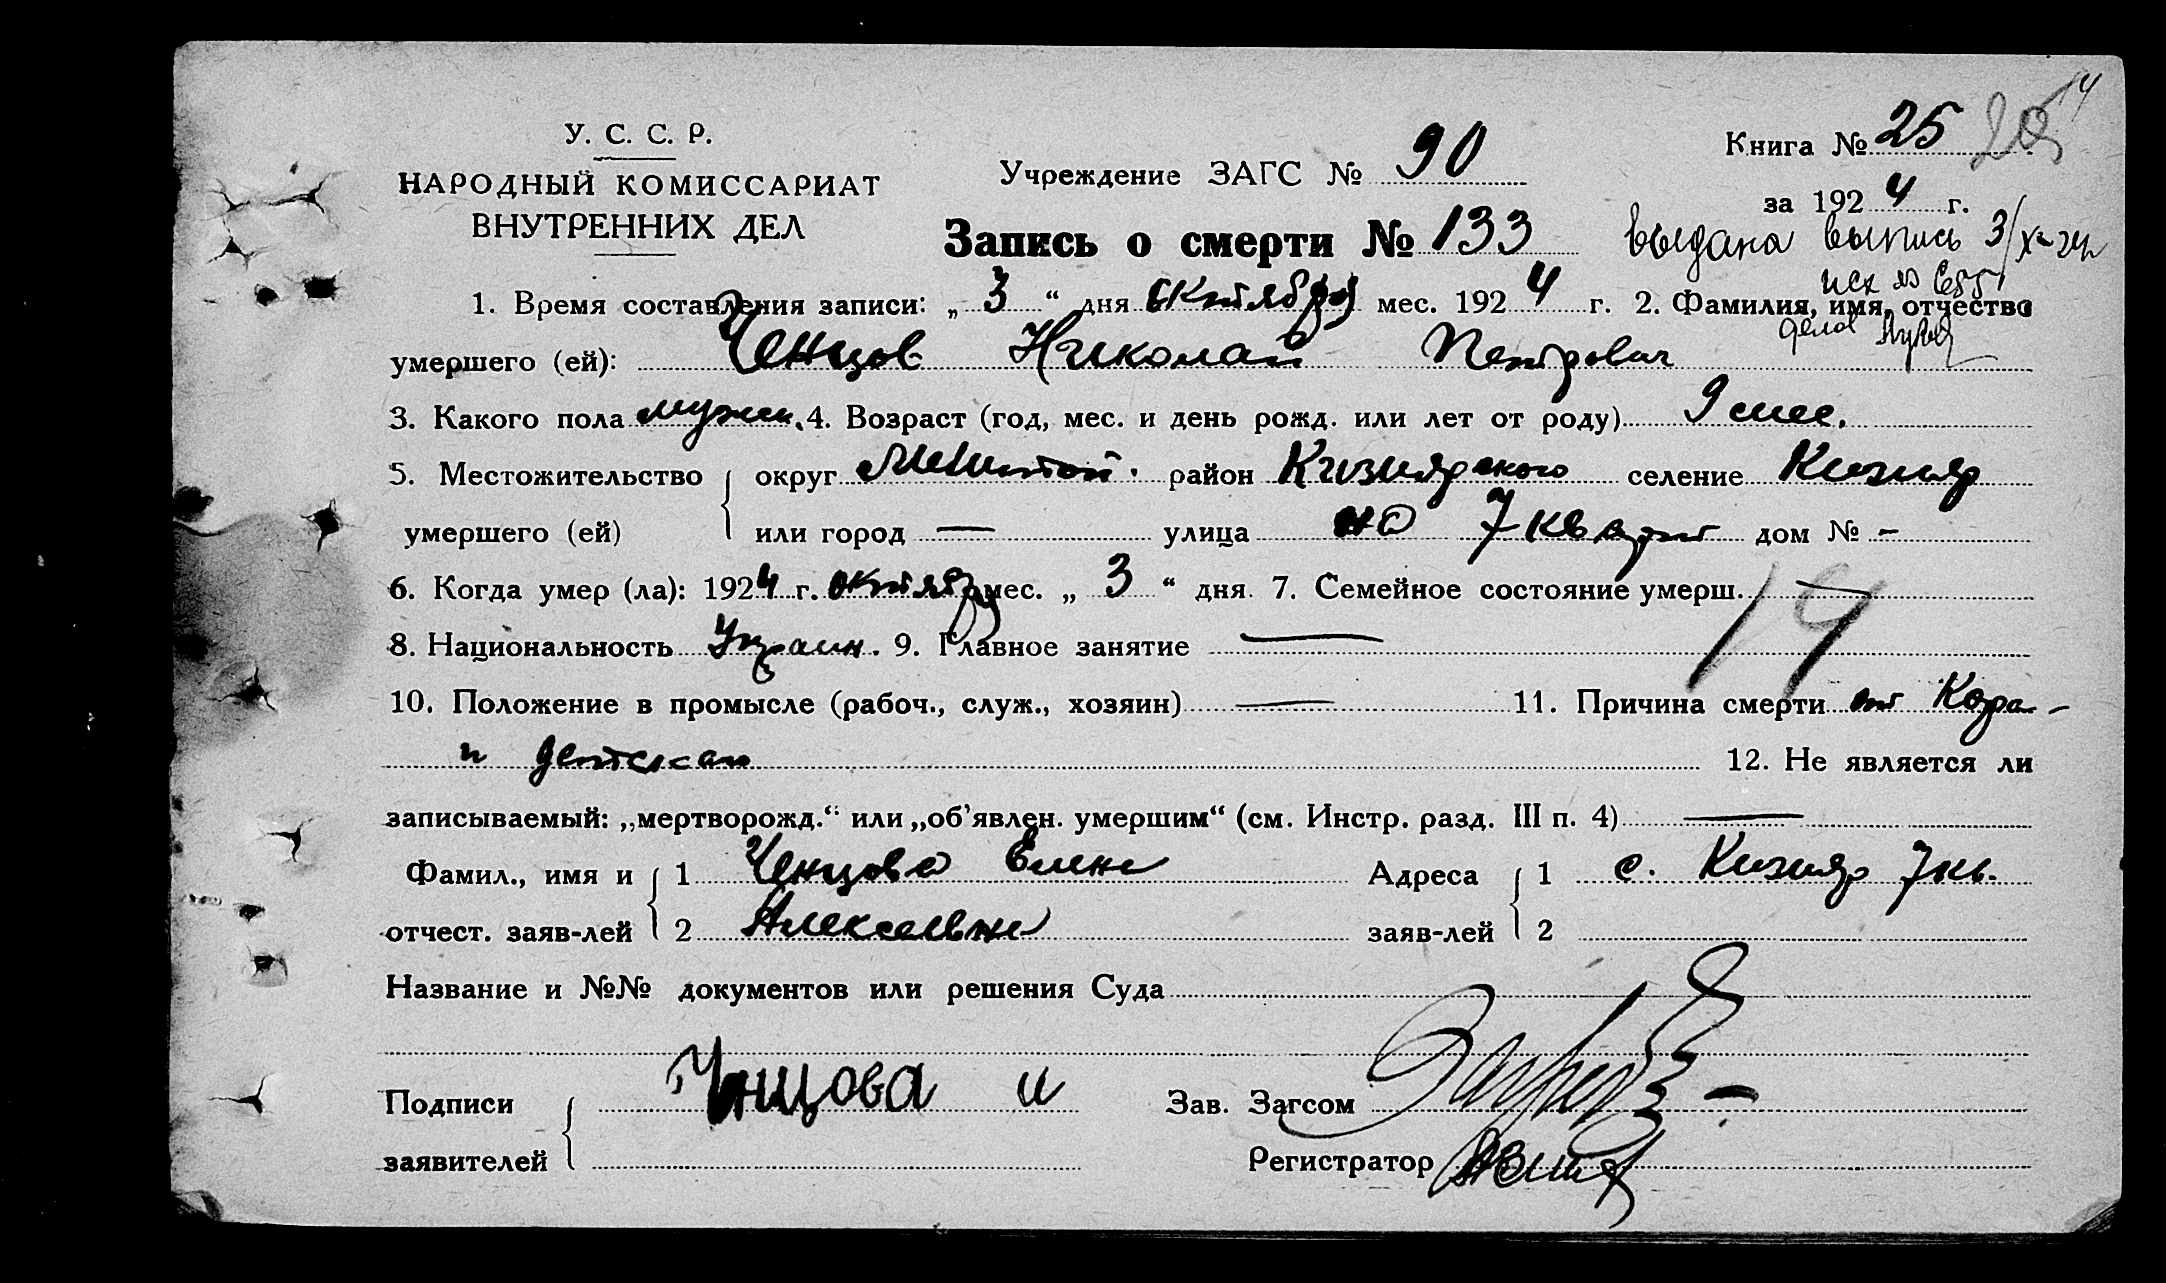 У. С. С. Р.
НАРОДНЫЙ КОМИССАРИАТ
ВНУТРЕННИХ ДЕЛ
Учреждение ЗАГС № 90
Книга № 25
за 1924 г.
Запись о смерти № 133
выдана выпись 3/X-24
исх №
1. Время составления записи: „3“ дня Октября мес. 1924 г. 2. Фамилия, имя, отчество
умершего (ей): Ченцов Николай Петрович
3. Какого пола мужск. 4. Возраст (год, мес. и день рожд. или лет от роду) 9 мес.
5. Местожительство округ Мелитоп. район Кизиярского селение Кизияр
умершего (ей) или город — улица по 7 кварт дом № -
6. Когда умер (ла): 1924 г. октября мес. „3“ дня. 7. Семейное состояние умерш. —
14
8. Национальность Украин. 9. Главное занятие —
10. Положение в промысле (рабоч., служ., хозяин) — 11. Причина смерти от
12. Не является ли
записываемый: „мертворожд.“ или „об'явлен. умершим“ (см. Инстр. разд. III п. 4) —
Фамил., имя и 1 Ченцова Елена Адреса 1 с. Кизияр 7 кв.
отчест. заяв-лей 2 Алексеевна заяв-лей 2
Название и №№ документов или решения Суда
Подписи Ченцова Зав. Загсом
заявителей Регистратор